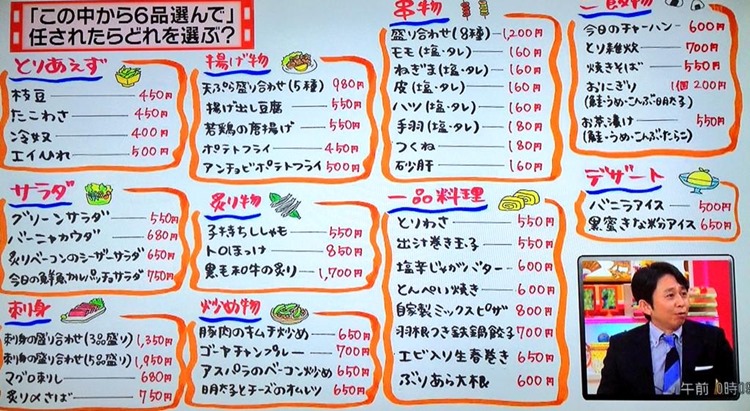 「この中から6品選んで」
任されたらどれを選ぶ?
とりあえず
枝豆 450円
たこわさ 450円
冷奴 400円
エイひれ 500円
サラダ
グリーンサラダ 550円
バーニャカウダ 680円
炙りベーコンのシーザーサラダ 650円
今日の鮮魚カルパッチョサラダ 750円
刺身
刺身の盛り合わせ(3品盛り) 1,350円
刺身の盛り合わせ(5品盛り) 1,950円
マグロ刺し 680円
炙り〆さば 750円
揚げ物
天ぷら盛り合わせ(5種) 980円
揚げ出し豆腐 550円
若鶏の唐揚げ 550円
ポテトフライ 450円
アンチョビポテトフライ 500円
炙り物
子持ちししゃも 550円
トロほっけ 850円
黒毛和牛の炙り 1,700円
炒め物
豚肉のキムチ炒め 650円
ゴーヤチャンプレー 700円
アスパラのベーコン炒め 650円
明太子とチーズのオムレツ 650円
串物
盛り合わせ(8種) 1,200円
モモ(塩・タレ) 160円
ねぎま(塩・タレ) 160円
皮(塩・タレ) 160円
ハツ(塩・タレ) 160円
手羽(塩・タレ) 180円
つくね 180円
砂肝 160円
一品料理
とりわさ 550円
出汁巻き玉子 550円
塩辛じゃがバター 600円
とんぺい焼き 600円
自家製ミックスピザ 800円
羽根つき鉄鍋餃子 700円
エビ入り生春巻き 650円
ぶりあら大根 600円
ご飯物
今日のチャーハン 600円
とり雑炊 700円
焼きそば 550円
おにぎり 1個 200円
(鮭・うめ・こんぶ・明太子)
お茶漬け 550円
(鮭・うめ・こんぶ・たらこ)
デザート
バニラアイス 500円
黒蜜きな粉アイス 650円
午前 10時